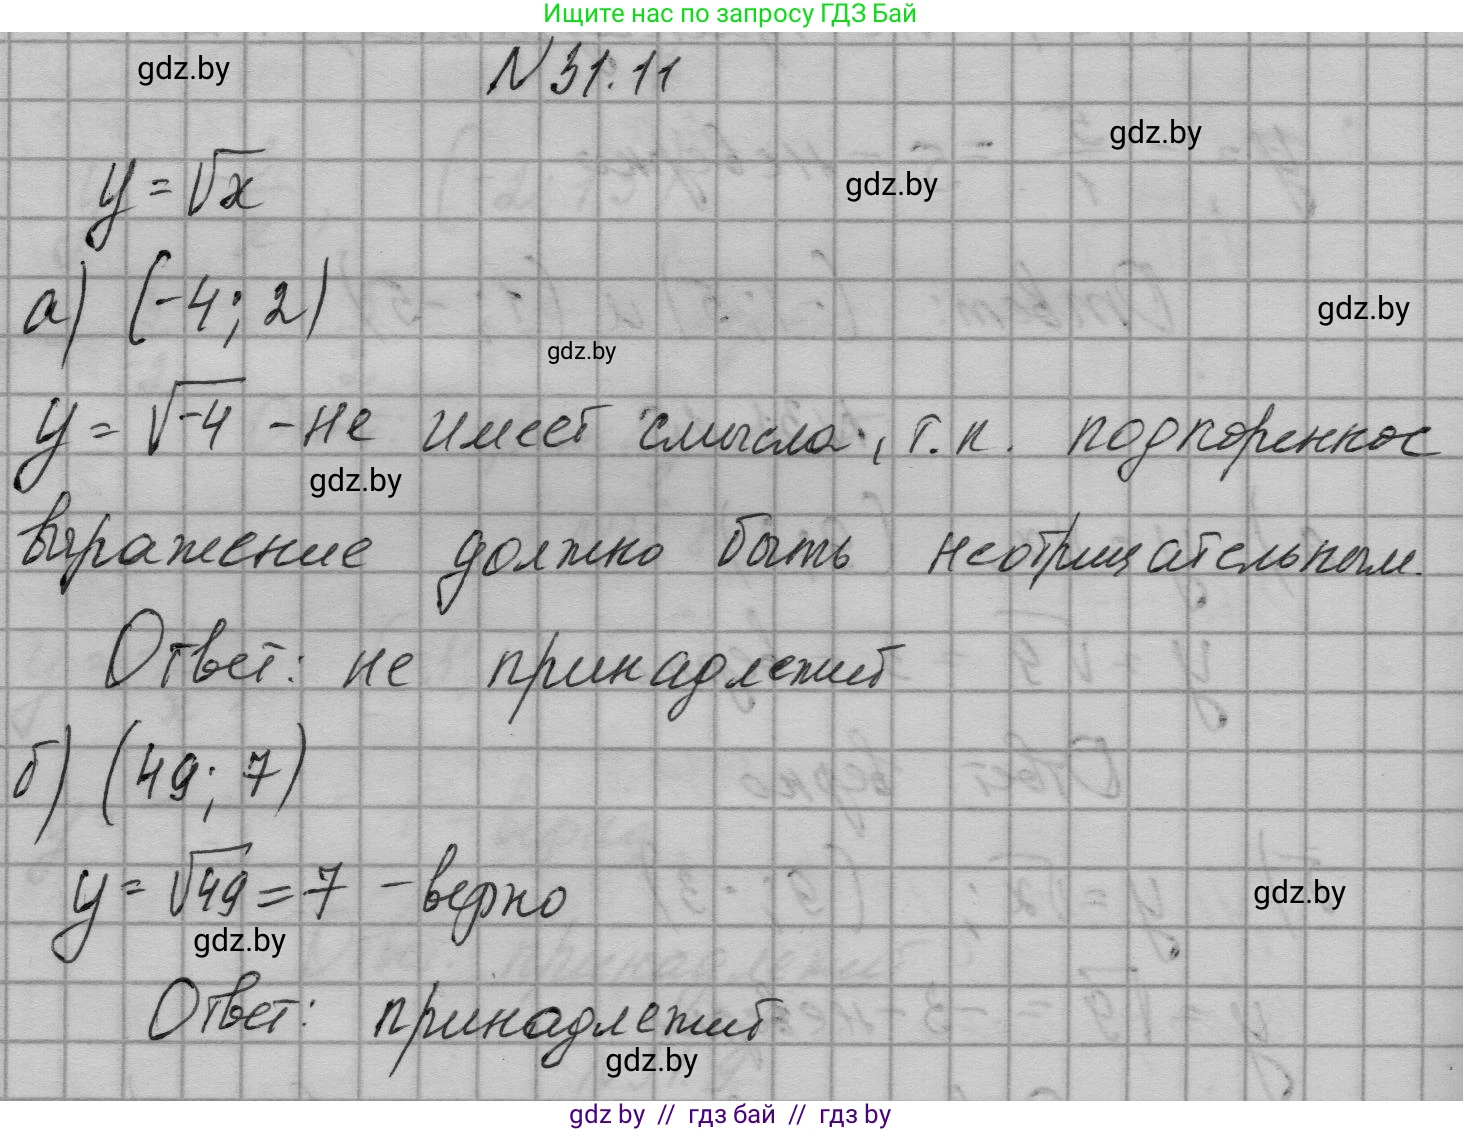 Ищите нас по запросу ГДЗ Бай
N 31.11
gdz.by
gdz.by
y = √x
gdz.by
а) (-4; 2)
gdz.by
gdz.by
y = √-4 - не имеет смысла, т.к. подкоренное
gdz.by
выражение должно быть неотрицательным.
Ответ: не принадлежит
б) (49; 7)
y = √49 = 7 - верно
gdz.by
gdz.by
Ответ: принадлежит
gdz.by
gdz by // гдз бай // гдз by